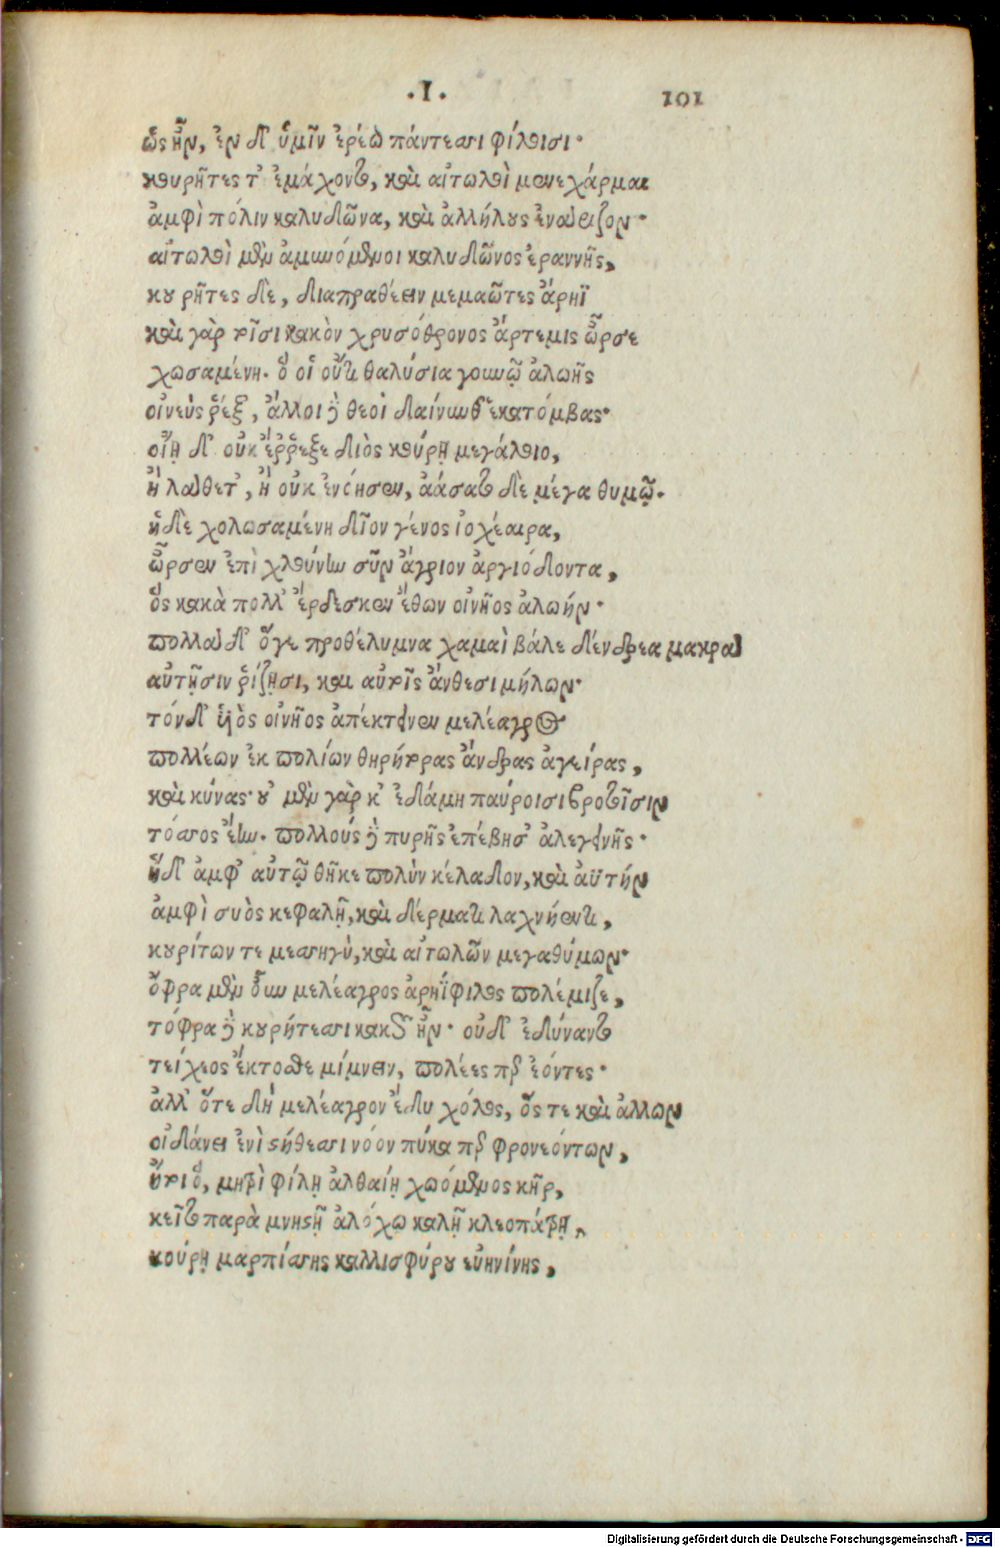 ·Ι· 101
ὥς ἦν, ἐν δ' ὑμῖν ἐρέω πάντεσσι φίλοισι·
κουρῆτές τ' ἐμάχοντο, καὶ αἰτωλοὶ μενεχάρμαι
ἀμφὶ πόλιν καλυδῶνα, καὶ ἀλλήλους ἐνάριζον·
αἰτωλοὶ μὲν ἀμυνόμενοι καλυδῶνος ἐραννῆς,
κουρῆτες δὲ, διαπραθέειν μεμαῶτες ἄρηϊ
καὶ γὰρ τοῖσι κακὸν χρυσόθρονος ἄρτεμις ὦρσε
χωσαμένη. ὅ οἱ οὔτι θαλύσια γουνῷ ἀλωῆς
οἰνεὺς ῥέξ', ἄλλοι δὲ θεοὶ δαίνυνθ' ἑκατόμβας·
οἴῃ δ' οὐκ ἔῤῥεξε διὸς κούρῃ μεγάλοιο,
ἢ λάθετ', ἢ οὐκ ἐνόησεν, ἀάσατο δὲ μέγα θυμῷ.
ἡ δὲ χολωσαμένη δῖον γένος ἰοχέαιρα,
ὦρσεν ἐπὶ χλούνην σῦν ἄγριον ἀργιόδοντα,
ὃς κακὰ πόλλ' ἔρδεσκεν ἔθων οἰνῆος ἀλωήν·
πολλὰ δ' ὅγε προθέλυμνα χαμαὶ βάλε δένδρεα μακρὰ
αὐτῇσιν ῥίζῃσι, καὶ αὐτοῖς ἄνθεσι μήλων·
τὸν δ' υἱὸς οἰνῆος ἀπέκτεινεν μελέαγρος
πολλέων ἐκ πολίων θηρήτορας ἄνδρας ἀγείρας,
καὶ κύνας· οὐ μὲν γάρ κ' ἐδάμη παύροισι βροτοῖσιν
τόσσος ἔην. πολλοὺς δὲ πυρῆς ἐπέβησ' ἀλεγεινῆς·
ἡ δ' ἀμφ' αὐτῷ θῆκε πολὺν κέλαδον, καὶ ἀϋτήν
ἀμφὶ συὸς κεφαλῇ, καὶ δέρματι λαχνήεντι,
κουρίτων τε μεσσηγὺ, καὶ αἰτωλῶν μεγαθύμων·
ὄφρα μὲν οὖν μελέαγρος ἀρηΐφιλος πολέμιζε,
τόφρα δὲ κουρήτεσσι κακῶς ἦν· οὐδ' ἐδύναντο
τείχεος ἔκτοσθε μίμνειν, πολέες περ ἐόντες·
ἀλλ' ὅτε δὴ μελέαγρον ἔδυ χόλος, ὅς τε καὶ ἄλλων
οἰδάνει ἐνὶ στήθεσσι νόον πύκα περ φρονεόντων,
ἤτοι ὁ, μητρὶ φίλῃ ἀλθαίῃ χωόμενος κῆρ,
κεῖτο παρὰ μνηστῇ ἀλόχῳ καλῇ κλεοπάτρῃ,
κούρῃ μαρπίσσης καλλισφύρου εὐηνίνης,
Digitalisierung gefördert durch die Deutsche Forschungsgemeinschaft - DFG